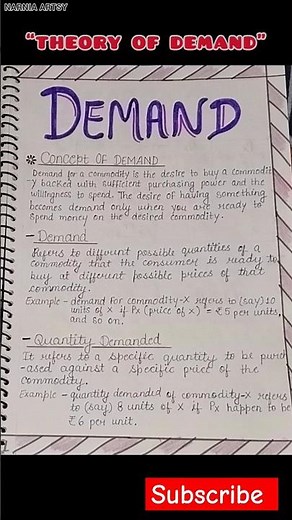 NARNIA ARTSY
"THEORY OF DEMAND"
DEMAND
* CONCEPT OF DEMAND
Demand for a commodity is the desire to buy a commodit
-y backed with sufficient purchasing power and the
willingness to spend. The desire of having something
becomes demand only when you are ready to
spend money on the desired commodity.
- Demand
Refers to different possible quantities of a
commodity that the consumer is ready to
buy at different possible prices of that
commodity.
Example - demand for commodity-X refers to (say) 10
units of X if Px (price of x) = ₹5 per units,
and so on.
- Quantity Demanded
It refers to a specific quantity to be purch
-ased against a specific price of the
commodity.
Example - quantity demanded of commodity-X refers
to (say) 8 units of X if Px happen to be
₹6 per unit.
Subscribe